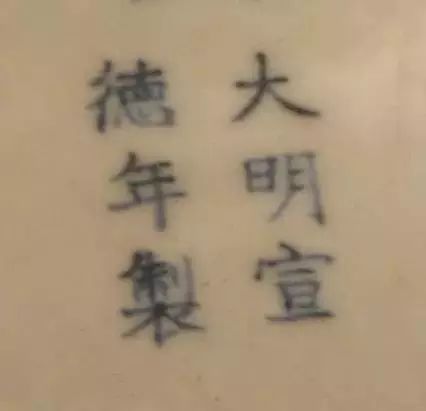 大明宣
徳年製